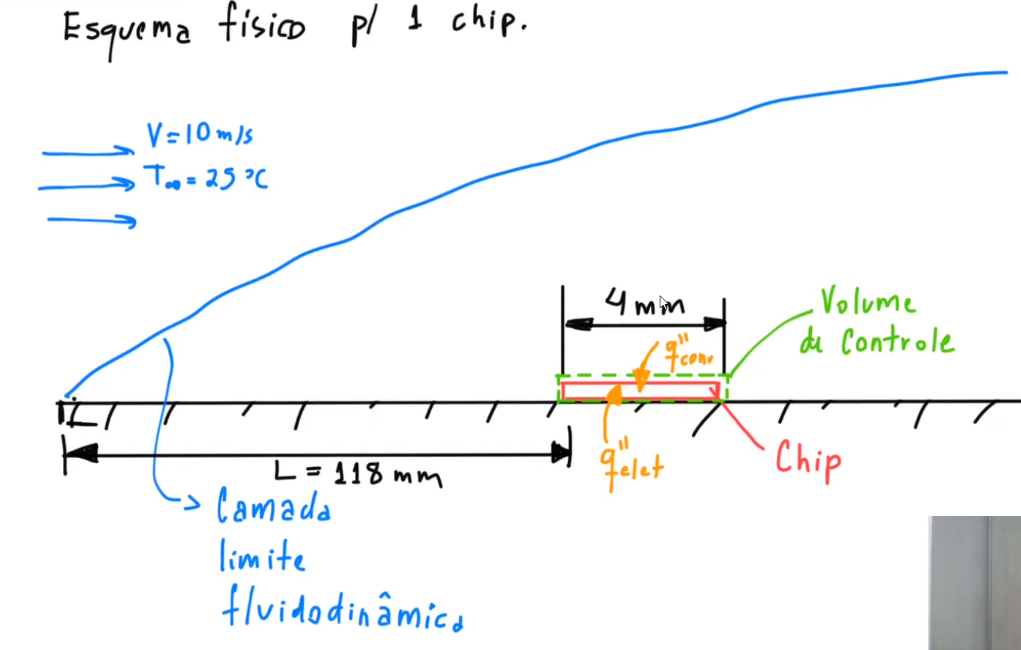 Esquema físico p/ 1 chip.
V=10 m/s
T∞ = 25 °C
4 mm
Volume
de Controle
q"conv
q"elet
Chip
L = 118 mm
Camada
limite
fluidodinâmica